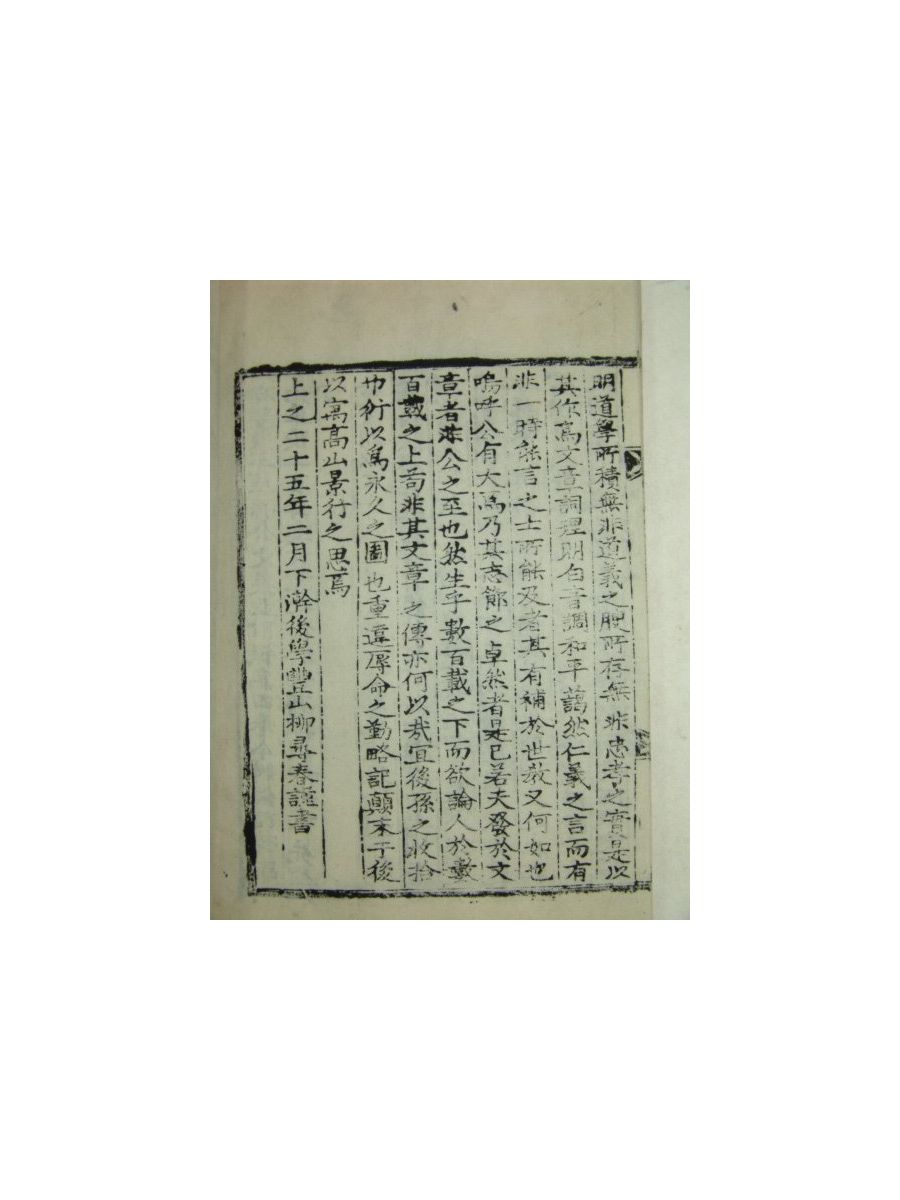 明道學所積無非道義之腴所存無非忠孝之實是以
其作爲文章詞理明白音調和平藹然仁義之言而有
非一時能言之士所能及者其有補於世敎又何如也
嗚呼公有大焉乃其志節之卓然者是已若夫發於文
章者非公之至也然生乎數百載之下而欲論人於數
百載之上苟非其文章之傳亦何以哉宜後孫之收拾
巾衍以爲永久之圖也重違辱命之勤略記顚末于後
以寓高山景行之思焉
上之二十五年二月下澣後學豐山柳尋春謹書